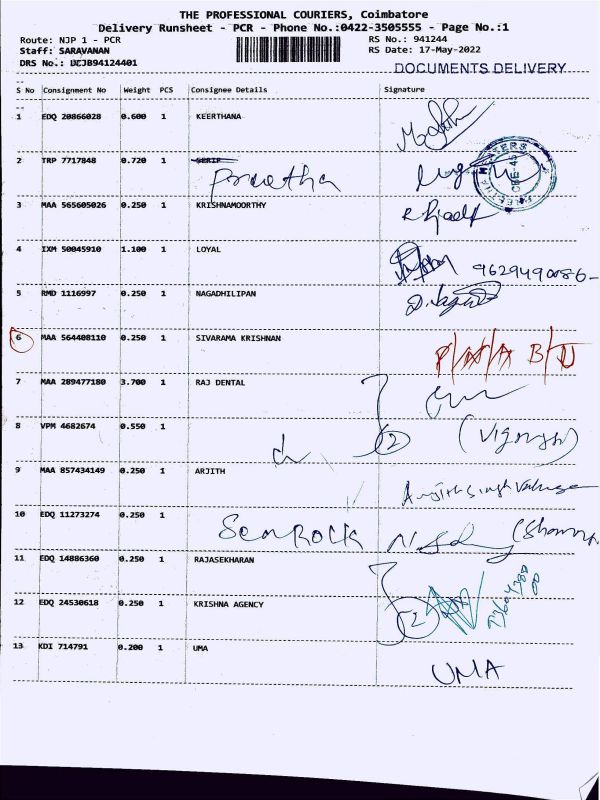 THE PROFESSIONAL COURIERS, Coimbatore
Delivery Runsheet - PCR - Phone No.:0422-3505555 - Page No.:1
Route: NJP 1 - PCR RS No.: 941244
Staff: SARAVANAN RS Date: 17-May-2022
DRS No.: DCJB94124401
DOCUMENTS DELIVERY
S No Consignment No Weight PCS Consignee Details Signature
1 EDQ 20866028 0.600 1 KEERTHANA
2 TRP 7717848 0.720 1
3 MAA 565605026 0.250 1 KRISHNAMOORTHY
4 IXM 50045910 1.100 1 LOYAL 9629490086-
5 RMD 1116997 0.250 1 NAGADHILIPAN
6 MAA 564408110 0.250 1 SIVARAMA KRISHNAN
7 MAA 289477180 3.700 1 RAJ DENTAL
8 VPM 4682674 0.550 1 2
9 MAA 857434149 0.250 1 ARJITH
10 EDQ 11273274 0.250 1 SeaRock
11 EDQ 14886360 0.250 1 RAJASEKHARAN
12 EDQ 24530618 0.250 1 KRISHNA AGENCY 2
13 KDI 714791 0.200 1 UMA UMA